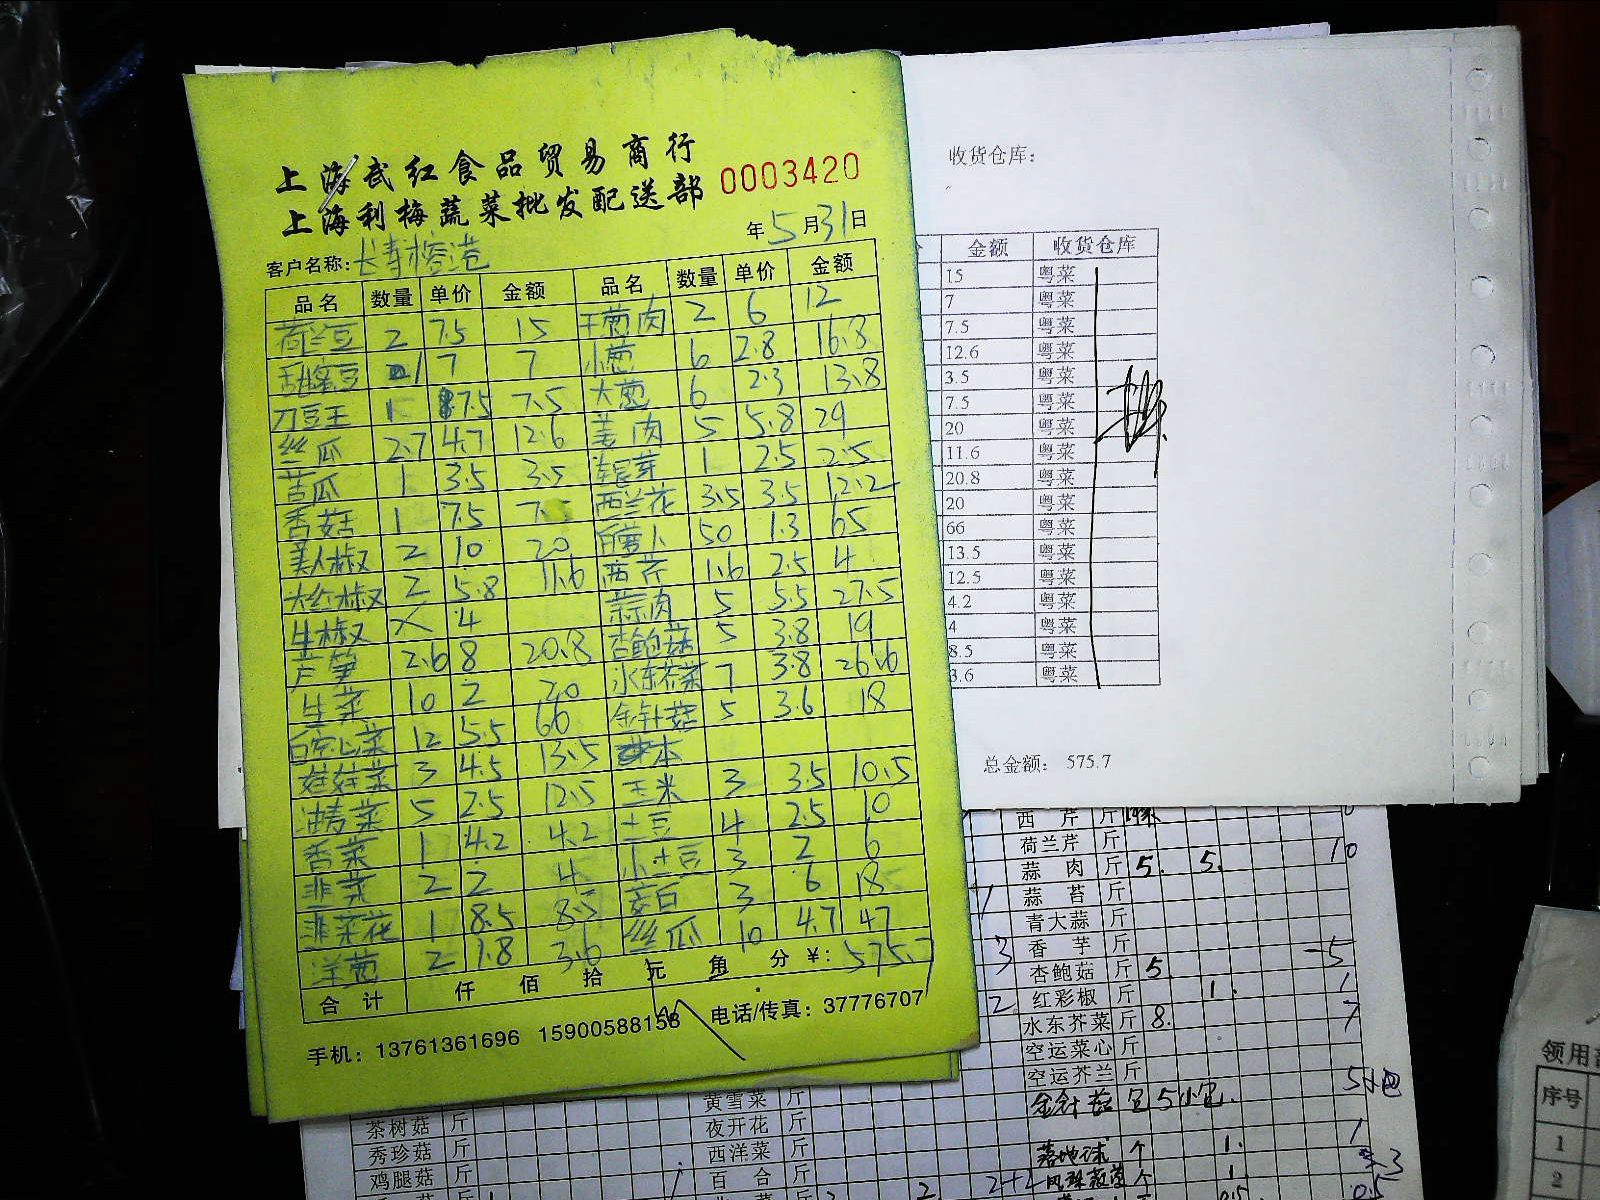 上海武红食品贸易商行
上海利梅蔬菜批发配送部 0003420
年5月31日
客户名称:长寿榕港
品名 数量 单价 金额 品名 数量 单价 金额
荷兰豆 2 7.5 15 干葱肉 2 6 12
甜蜜豆 1 7 7 小葱 6 2.8 16.8
刀豆王 1 7.5 7.5 大葱 6 2.3 13.8
丝瓜 2.7 4.7 12.6 姜肉 5 5.8 29
苦瓜 1 3.5 3.5 1 2.5 2.5
香菇 1 7.5 7.5 西兰花 3.5 3.5 12.2
美人椒 2 10 20 白萝卜 50 1.3 65
大红椒 2 5.8 11.6 西芹 1.6 2.5 4
牛椒 X 4 蒜肉 5 5.5 27.5
芦笋 2.6 8 20.8 杏鲍菇 5 3.8 19
生菜 10 2 20 水东芥菜 7 3.8 26.6
12 5.5 66 金针菇 5 3.6 18
娃娃菜 3 4.5 13.5
油麦菜 5 2.5 12.5 玉米 3 3.5 10.5
香菜 1 4.2 4.2 土豆 4 2.5 10
韭菜 2 2 4 小土豆 3 2 6
韭菜花 1 8.5 8.5 茭白 3 6 18
洋葱 2 1.8 3.6 丝瓜 10 4.7 47
合计 仟 佰 拾 元 角 分 ¥: 575.7
手机: 13761361696 15900588158 电话/传真: 37776707
收货仓库:
金额 收货仓库
15 粤菜
7 粤菜
7.5 粤菜
12.6 粤菜
3.5 粤菜
7.5 粤菜
20 粤菜
11.6 粤菜
20.8 粤菜
20 粤菜
66 粤菜
13.5 粤菜
12.5 粤菜
4.2 粤菜
4 粤菜
8.5 粤菜
3.6 粤菜
总金额: 575.7
西芹 斤
荷兰芹 斤 10
蒜肉 斤 5. 5.
1 蒜苔 斤
青大蒜 斤
3 香芋 斤 -5
杏鲍菇 斤 5 1
2 红彩椒 斤 1.
水东芥菜 斤 8. 7
空运菜心 斤
空运芥兰 斤 5小包
金针菇 包 5小包.
黄雪菜 斤
茶树菇 斤 夜开花 斤
秀珍菇 斤 西洋菜 斤 个 1. 1
鸡腿菇 斤 1 百合 斤 2+2 个 1 3
2 0.5 0.5
领用
序号
1
2